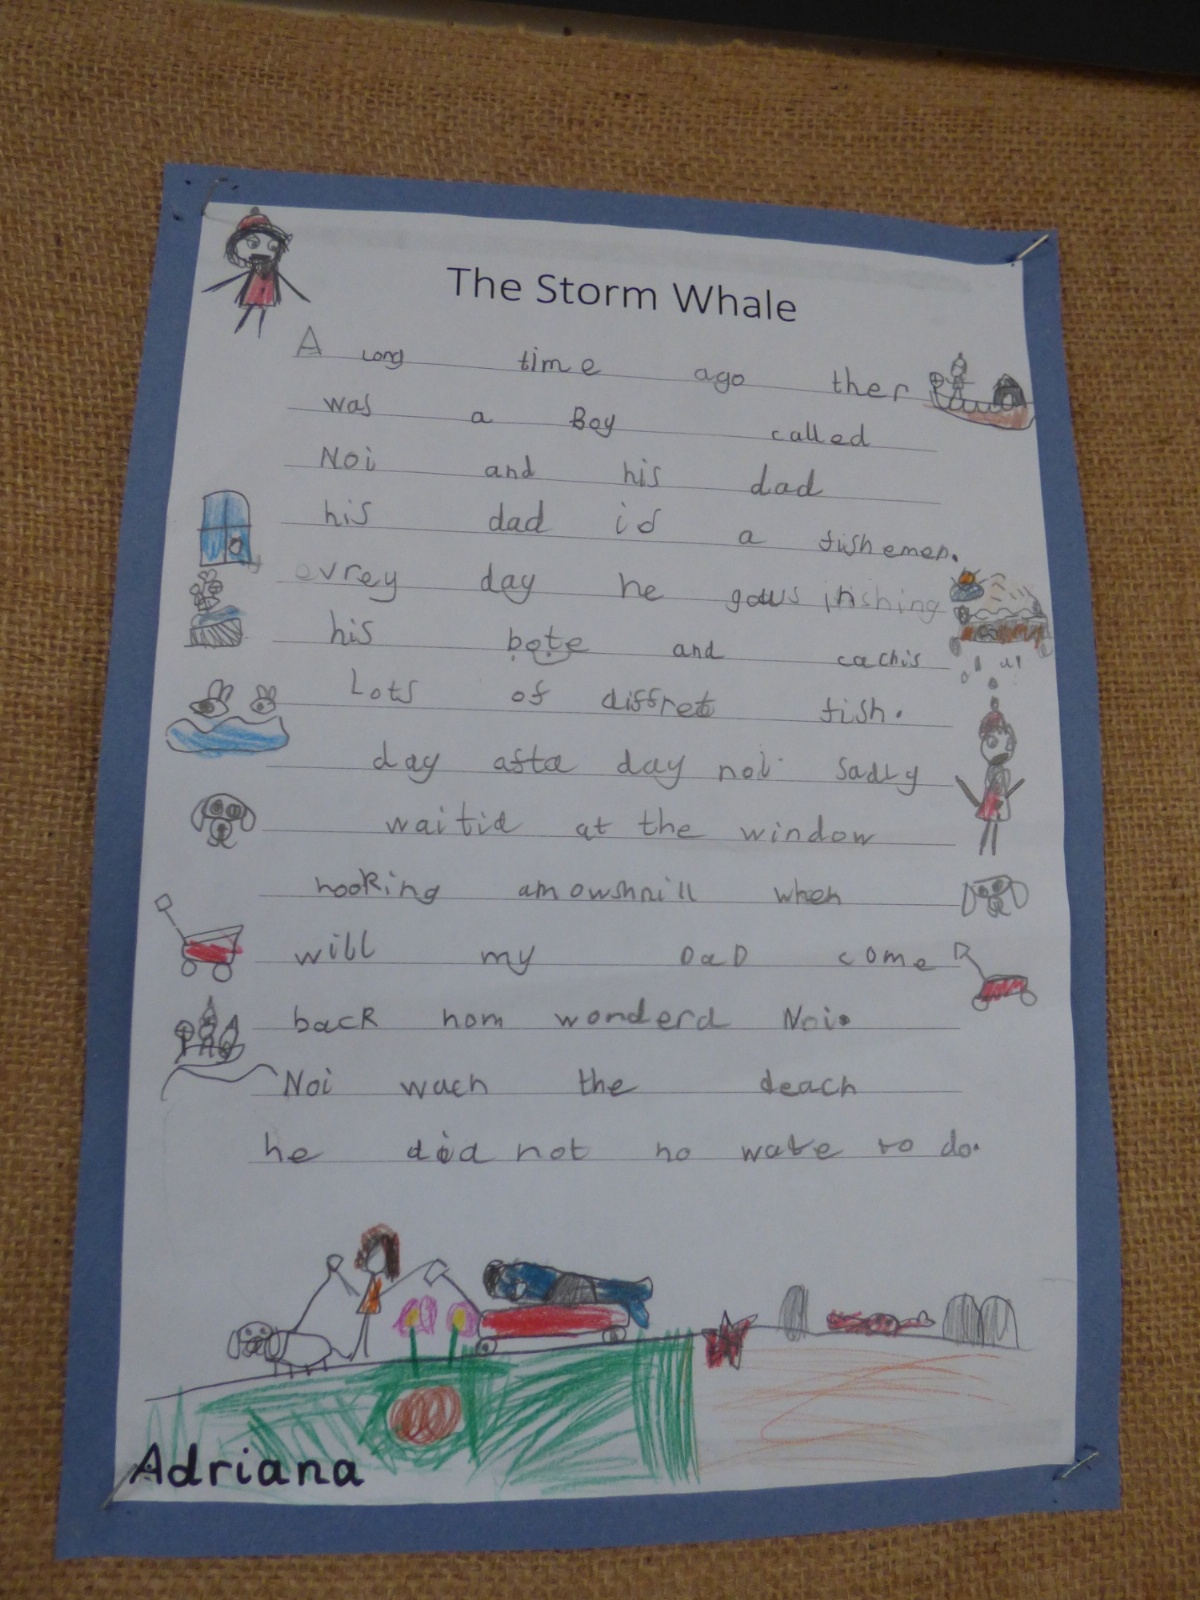 The Storm Whale
A Long time ago ther
was a Boy called
Noi and his dad
his dad is a fishemen.
evrey day he gows in
his bote and cachis
Lots of diffret fish.
day afta day noi sadly
waitid at the window
when
will my DaD come
back hom wonderd Noi.
Noi wach the
he did not no wate to do.
Adriana